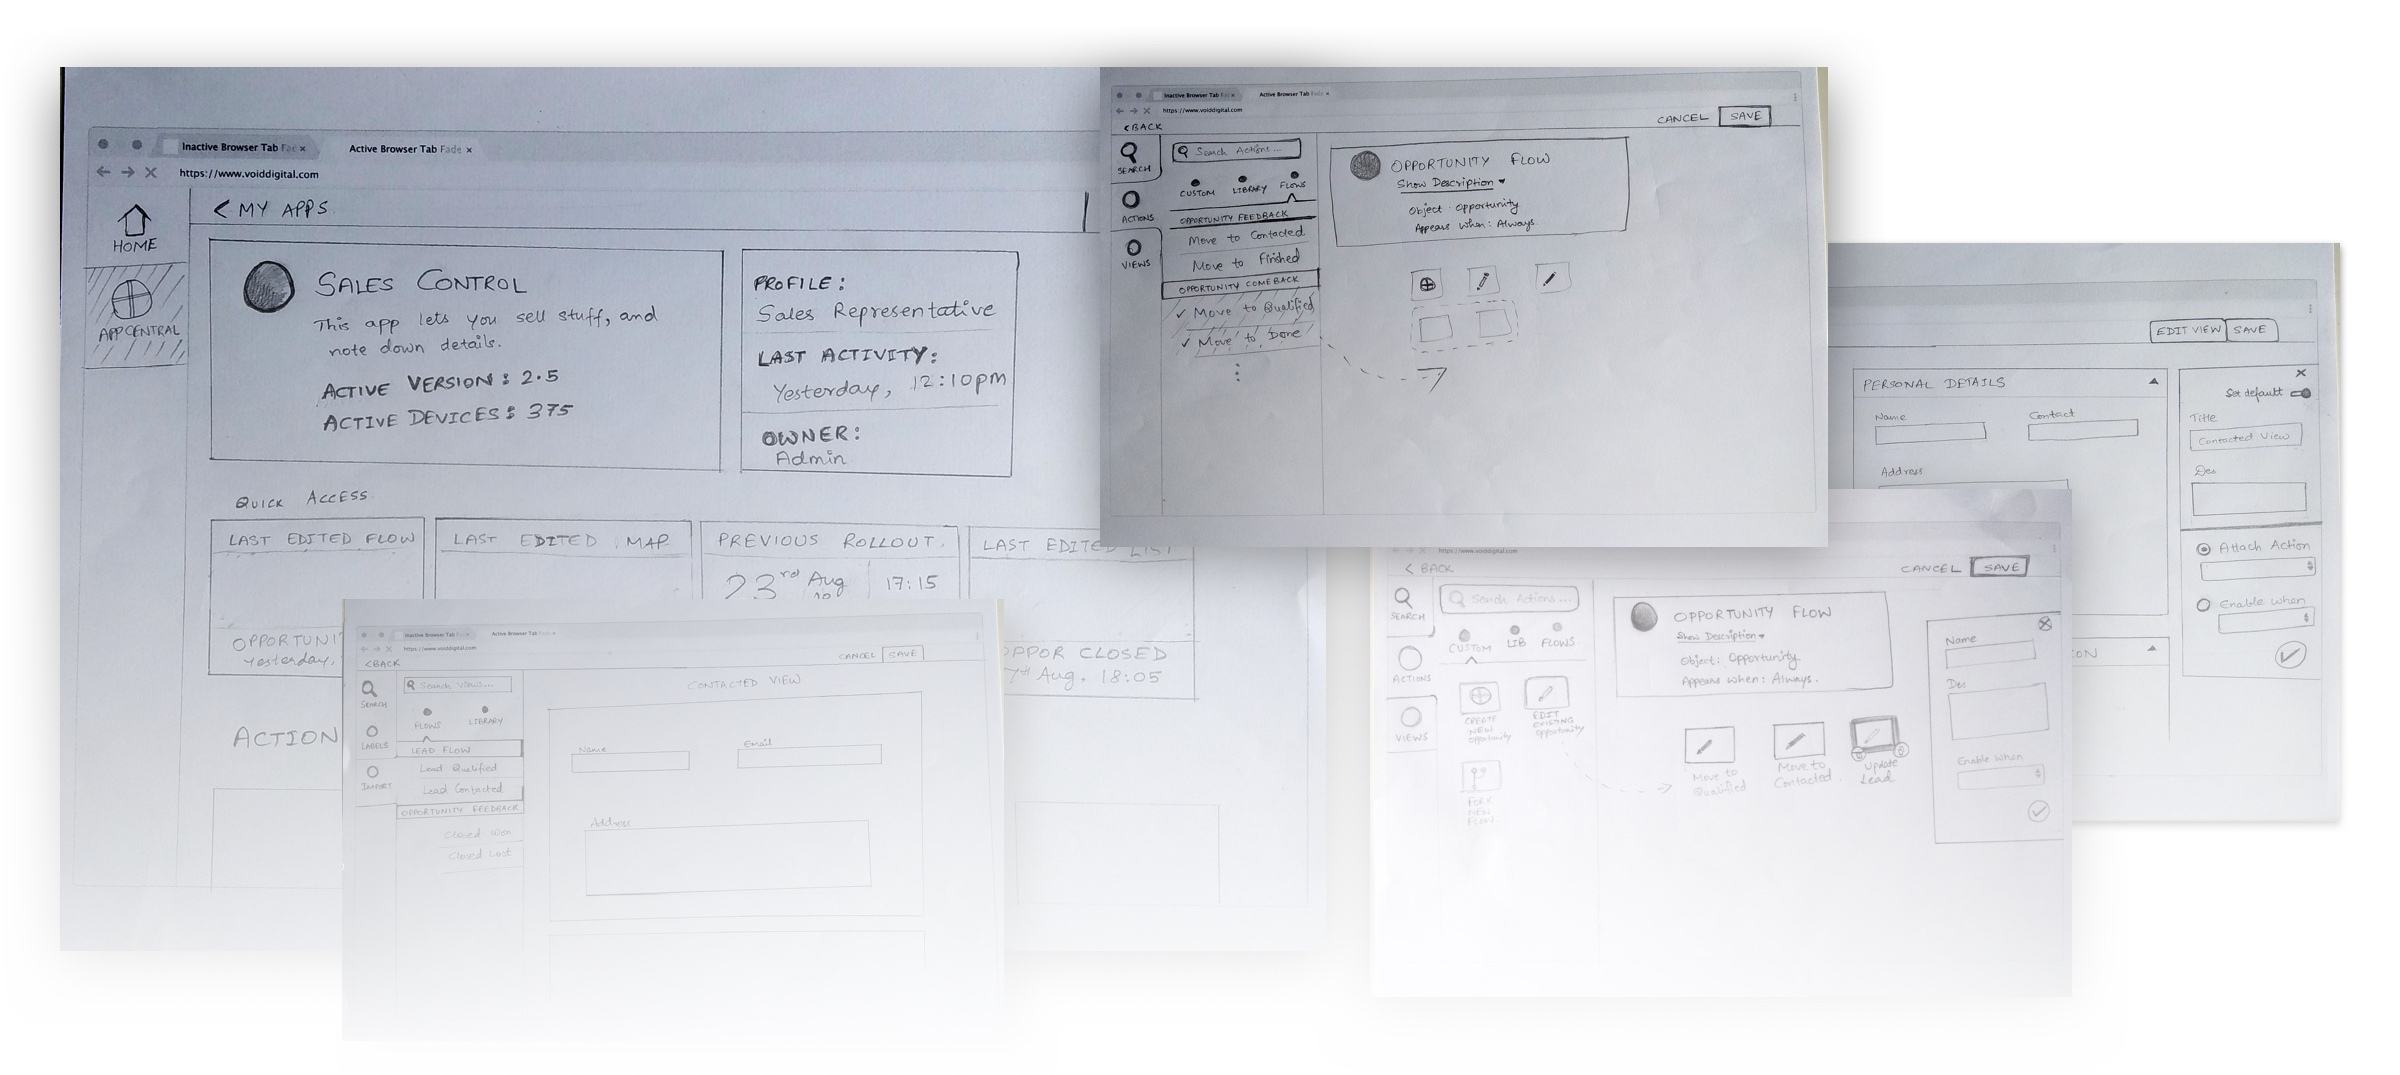 Inactive Browser Tab Fac ×
Active Browser Tab Fade ×
https://www.voiddigital.com
HOME
APP CENTRAL
< MY APPS
SALES CONTROL
This app lets you sell stuff, and
note down details.
ACTIVE VERSION : 2.5
ACTIVE DEVICES : 375
PROFILE :
Sales Representative
LAST ACTIVITY :
Yesterday, 12:10pm
OWNER :
Admin
QUICK ACCESS
LAST EDITED FLOW
OPPORTUNI
Yesterday,
LAST EDITED MAP
PREVIOUS ROLLOUT
23rd Aug
17:15
LAST EDITED LIST
OPPOR CLOSED
7th Aug, 18:05
ACTION
Inactive Browser Tab Fac ×
Active Browser Tab Fade ×
https://www.voiddigital.com
< BACK
CANCEL
SAVE
SEARCH
ACTIONS
VIEWS
Search Actions...
CUSTOM
LIBRARY
FLOWS
OPPORTUNITY FEEDBACK
Move to Contacted
Move to Finished
OPPORTUNITY COMEBACK
✓ Move to Qualified
✓ Move to Done
OPPORTUNITY FLOW
Show Description ▾
Object : Opportunity
Appears When : Always
EDIT VIEW
SAVE
PERSONAL DETAILS
Name
Contact
Address
ON
×
Set default
Title
Contacted View
Des
Attach Action
Enable When
Inactive Browser Tab Fade
Active Browser Tab Fade ×
https://www.voiddigital.com
<BACK
CANCEL
SAVE
SEARCH
LABELS
IMPORT
Search Views...
FLOWS
LIBRARY
LEAD FLOW
Lead Qualified
Lead Contacted
OPPORTUNITY FEEDBACK
Closed Won
Closed Lost
CONTACTED VIEW
Name
Email
Address
https://www.voiddigital.com
< BACK
CANCEL
SAVE
SEARCH
ACTIONS
VIEWS
Search Actions...
CUSTOM
LIB
FLOWS
CREATE
NEW
Opportunity
EDIT
EXISTING
Opportunity
FORK
NEW
FLOW
OPPORTUNITY FLOW
Show Description ▾
Object : Opportunity
Appears When : Always.
Move to
Qualified
Move to
Contacted
Update
Lead
Name
Des
Enable When